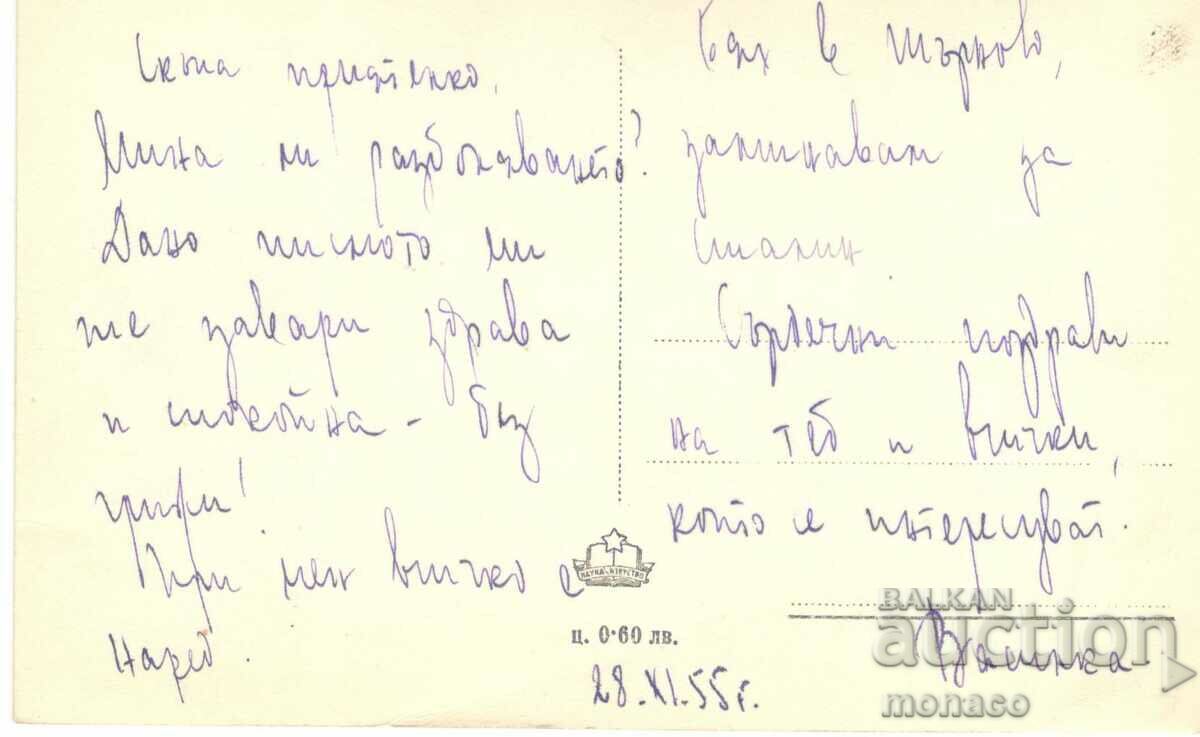 Скъпа приятелко,
Мина ли разболяването?
Дано писмото ми
ще завари здрава
и спокойна - без
грижи!
При мен всичко е
наред.
Бях в Търново,
заминавам за
Сталин
Сърдечни поздрави
на теб и всички,
които се интересуват.
НАУКА И ИЗКУСТВО
ц. 0·60 лв.
28.XI.55г.
BALKAN
auction
monaco